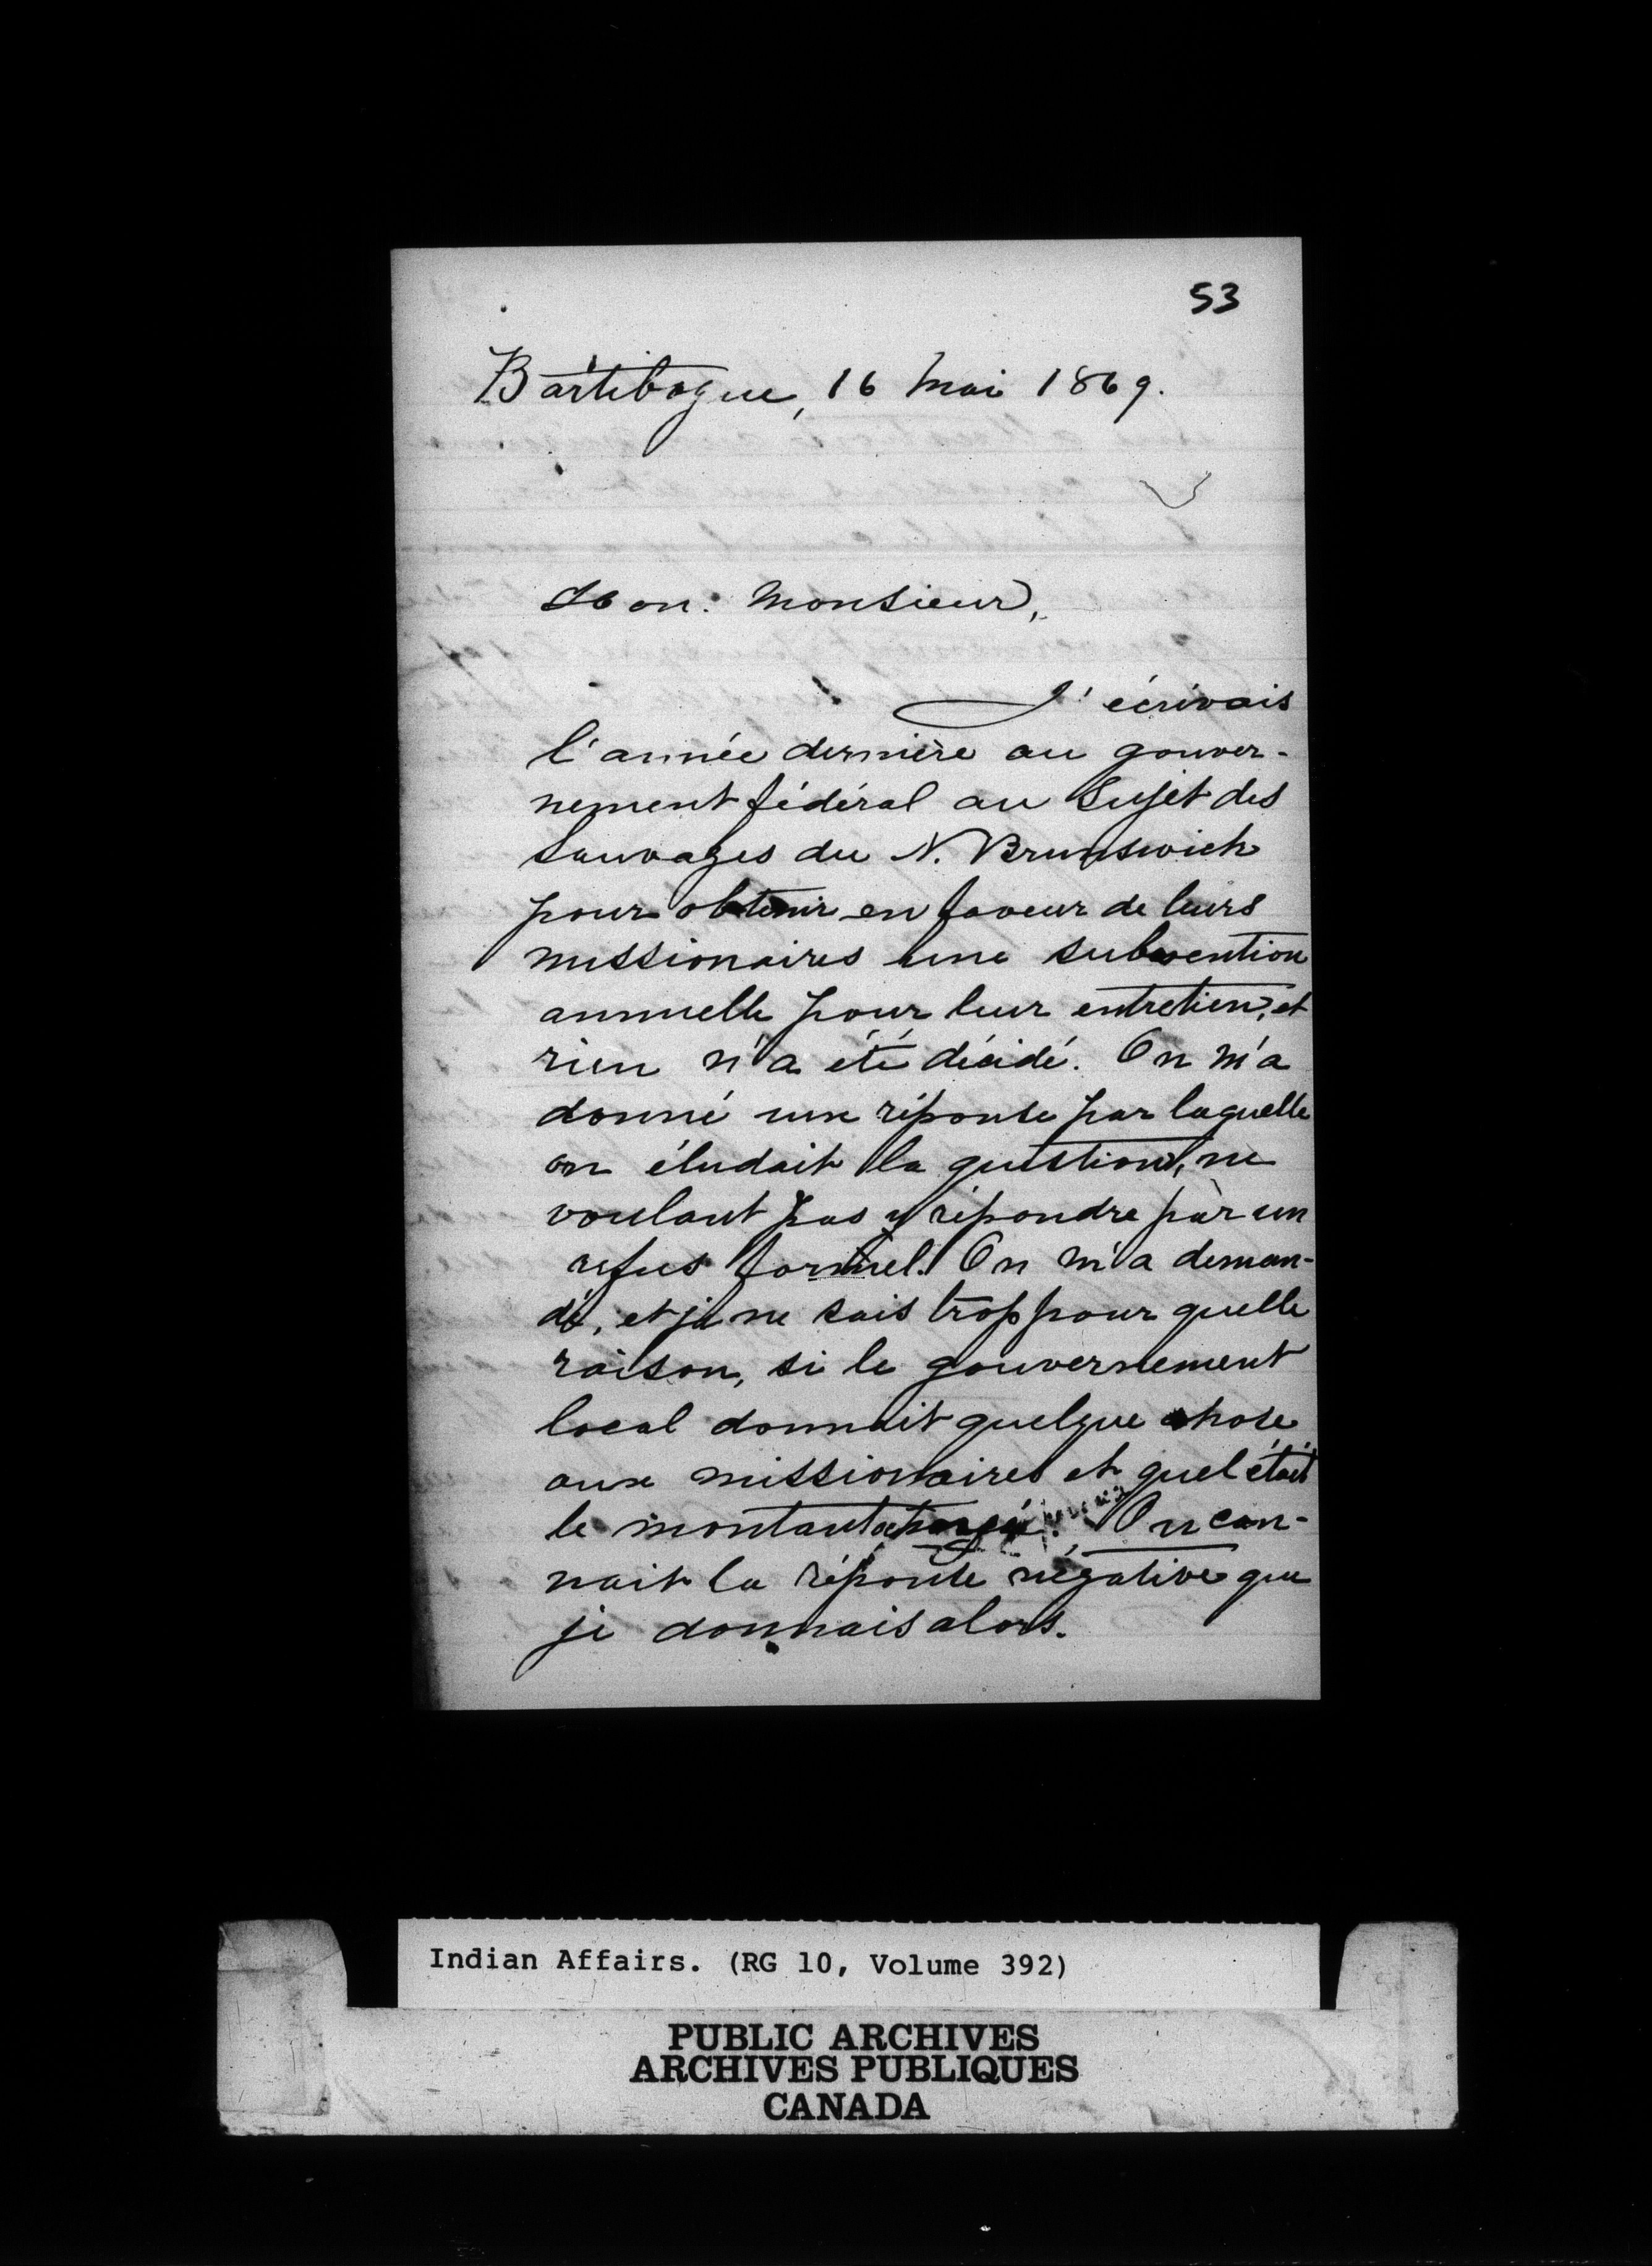 53
Bartibogue, 16 Mai 1869.
Hon. Monsieur,
J'écrivais
l'année dernière au gouver-
nement fédéral au Sujet des
Sauvages du N. Brunswick
pour obtenir en faveur de leurs
missionaires une subvention
annuelle pour leur entretien, et
rien n'a été décidé. On m'a
donné une réponse par laquelle
on éludait la question, ne
voulant pas y répondre par un
refus formel. On m'a deman-
dé, et je ne sais trop pour quelle
raison, si le gouvernement
local donnait quelque chose
aux missionaires et quel était
le montant On con-
nait la réponse négative que
je donnais alors.
Indian Affairs. (RG 10, Volume 392)
PUBLIC ARCHIVES
ARCHIVES PUBLIQUES
CANADA